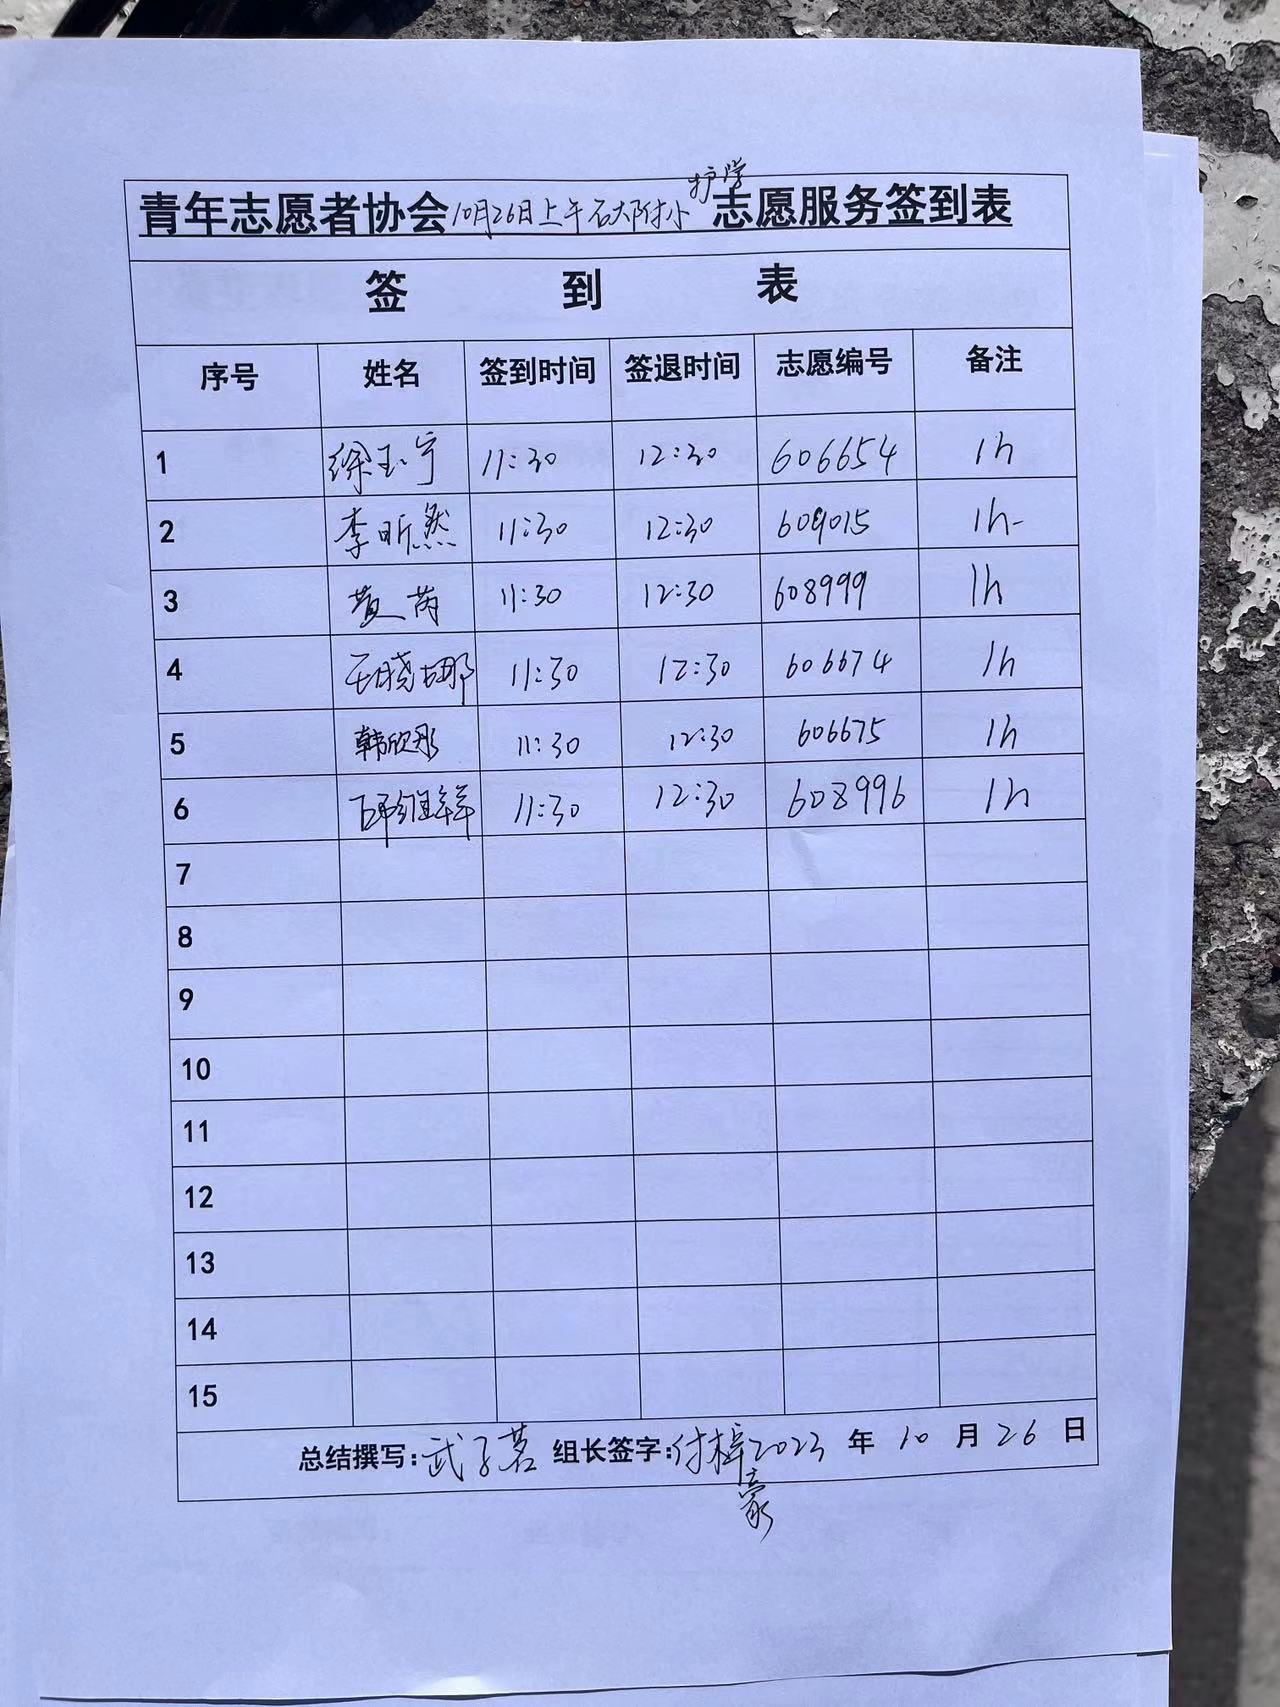 青年志愿者协会10月26日上午石大附小护学志愿服务签到表
签 到 表
序号 姓名 签到时间 签退时间 志愿编号 备注
1 徐玉宁 11:30 12:30 606654 1h
2 李昕然 11:30 12:30 609015 1h
3 黄芮 11:30 12:30 608999 1h
4 王晓娜 11:30 12:30 606674 1h
5 韩欣彤 11:30 12:30 606675 1h
6 11:30 12:30 608996 1h
7
8
9
10
11
12
13
14
15
总结撰写:武子茗 组长签字:付梓豪 2023 年 10 月 26 日